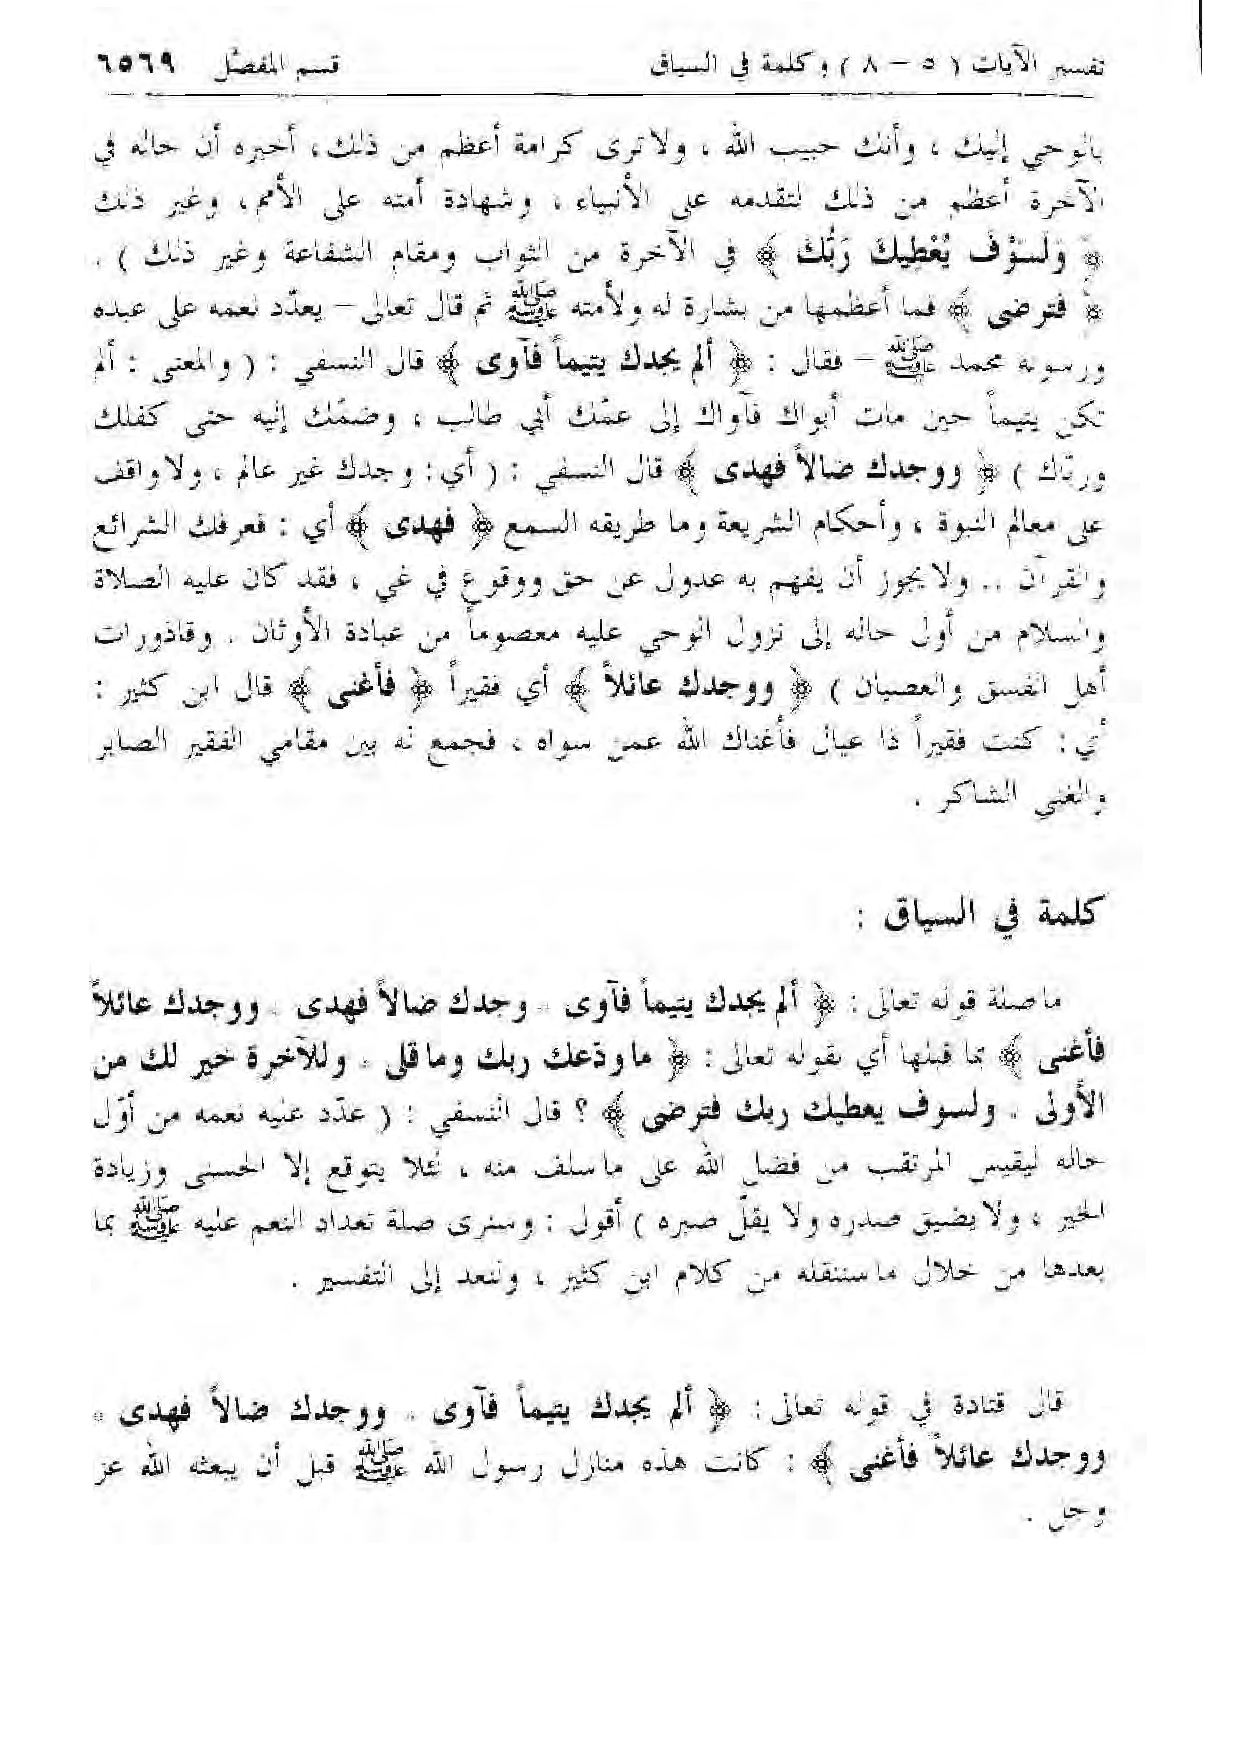 تفسير الآيات ( ٥ – ٨ ) وكلمة في السياق قسم المفصَّل ٦٥٦٩
بالوحي إليك ، وأنك حبيب الله ، ولا ترى كرامة أعظم من ذلك ، أخبره أن حاله في
الآخرة أعظم من ذلك لتقدمه على الأنبياء ، وشهادة أمته على الأمم ، وغير ذلك
﴿ ولَسَوْفَ يُعْطِيكَ رَبُّكَ ﴾ في الآخرة من الثواب ومقام الشفاعة وغير ذلك ) .
﴿ فترضى ﴾ فما أعظمها من بشارة له ولأمته ﷺ ثم قال تعالى – يعدّد نعمه على عبده
ورسوله محمد ﷺ – فقال : ﴿ ألم يجدك يتيماً فآوى ﴾ قال النسفي : ( والمعنى : ألم
تكن يتيماً حين مات أبواك فآواك إلى عمّك أبي طالب ، وضمّك إليه حتى كفلك
وربّاك ) ﴿ ووجدك ضالاً فهدى ﴾ قال النسفي : ( أي : وجدك غير عالم ، ولا واقف
على معالم النبوة ، وأحكام الشريعة وما طريقه السمع ﴿ فهدى ﴾ أي : فعرفك الشرائع
والقرآن .. ولا يجوز أن يفهم به عدول عن حق ووقوع في غي ، فقد كان عليه الصلاة
والسلام من أول حاله إلى نزول الوحي عليه معصوماً من عبادة الأوثان . وقاذورات
أهل الفسق والعصيان ) ﴿ ووجدك عائلاً ﴾ أي فقيراً ﴿ فأغنى ﴾ قال ابن كثير :
أي : كنت فقيراً ذا عيال فأغناك الله عمن سواه ، فجمع له بين مقامي الفقير الصابر
والغني الشاكر .
كلمة في السياق :
ما صلة قوله تعالى : ﴿ ألم يجدك يتيماً فآوى . وجدك ضالاً فهدى . ووجدك عائلاً
فأغنى ﴾ بما قبلها أي بقوله تعالى : ﴿ ما ودّعك ربك وما قلى . وللآخرة خير لك من
الأولى . ولسوف يعطيك ربك فترضى ﴾ ؟ قال النسفي : ( عدّد عليه نعمه من أوّل
حاله ليقيس المرتقب من فضل الله على ما سلف منه ، لئلا يتوقع إلا الحسنى وزيادة
الخير ، ولا يضيق صدره ولا يقلّ صبره ) أقول : وسنرى صلة تعداد النعم عليه ﷺ بما
بعدها من خلال ما سننقله من كلام ابن كثير ، ولنعد إلى التفسير .
قال قتادة في قوله تعالى : ﴿ ألم يجدك يتيماً فآوى . ووجدك ضالاً فهدى *
ووجدك عائلاً فأغنى ﴾ : كانت هذه منازل رسول الله ﷺ قبل أن يبعثه الله عز
وجل .